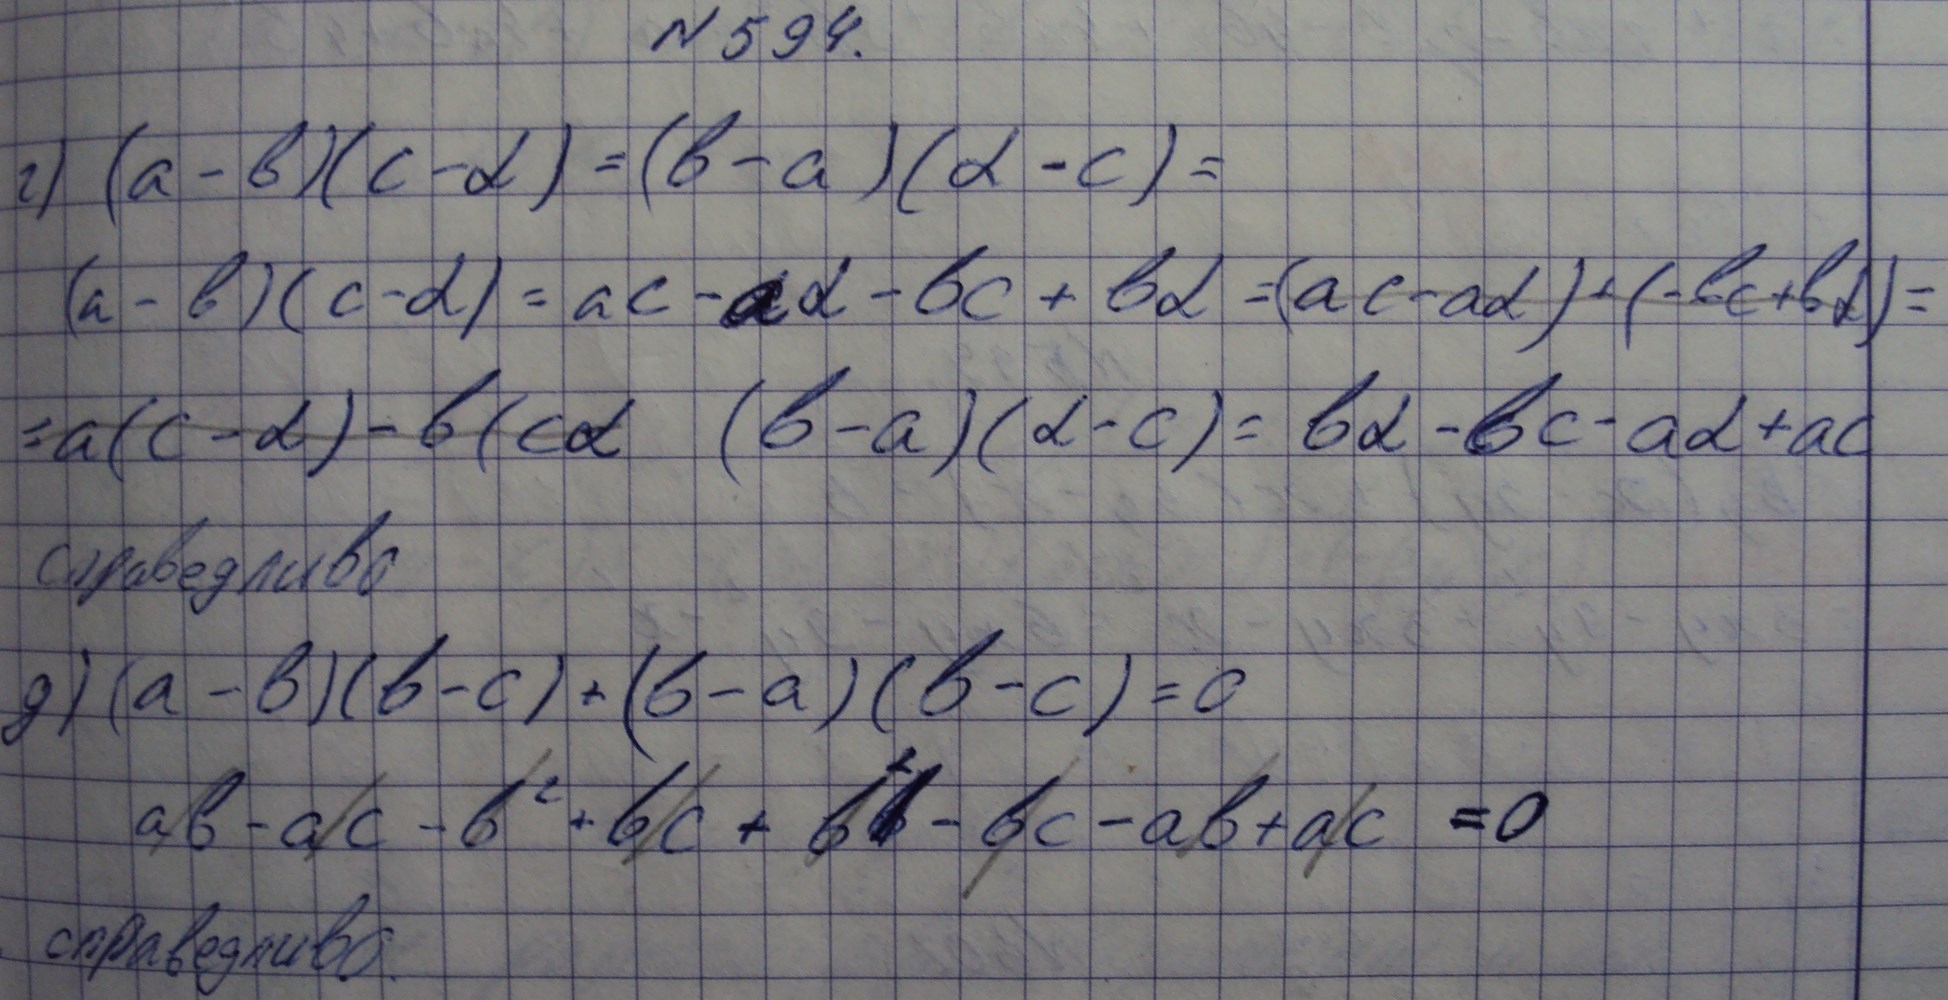 N 594.
г) (a - b)(c - d) = (b - a)(d - c) =
(a - b)(c - d) = ac - ad - bc + bd = (ac - ad) + (-bc + bd) =
= a(c - d) - b(cd (b - a)(d - c) = bd - bc - ad + ac
справедливо
д) (a - b)(b - c) + (b - a)(b - c) = 0
ab - ac - b² + bc + b² - bc - ab + ac = 0
справедливо.